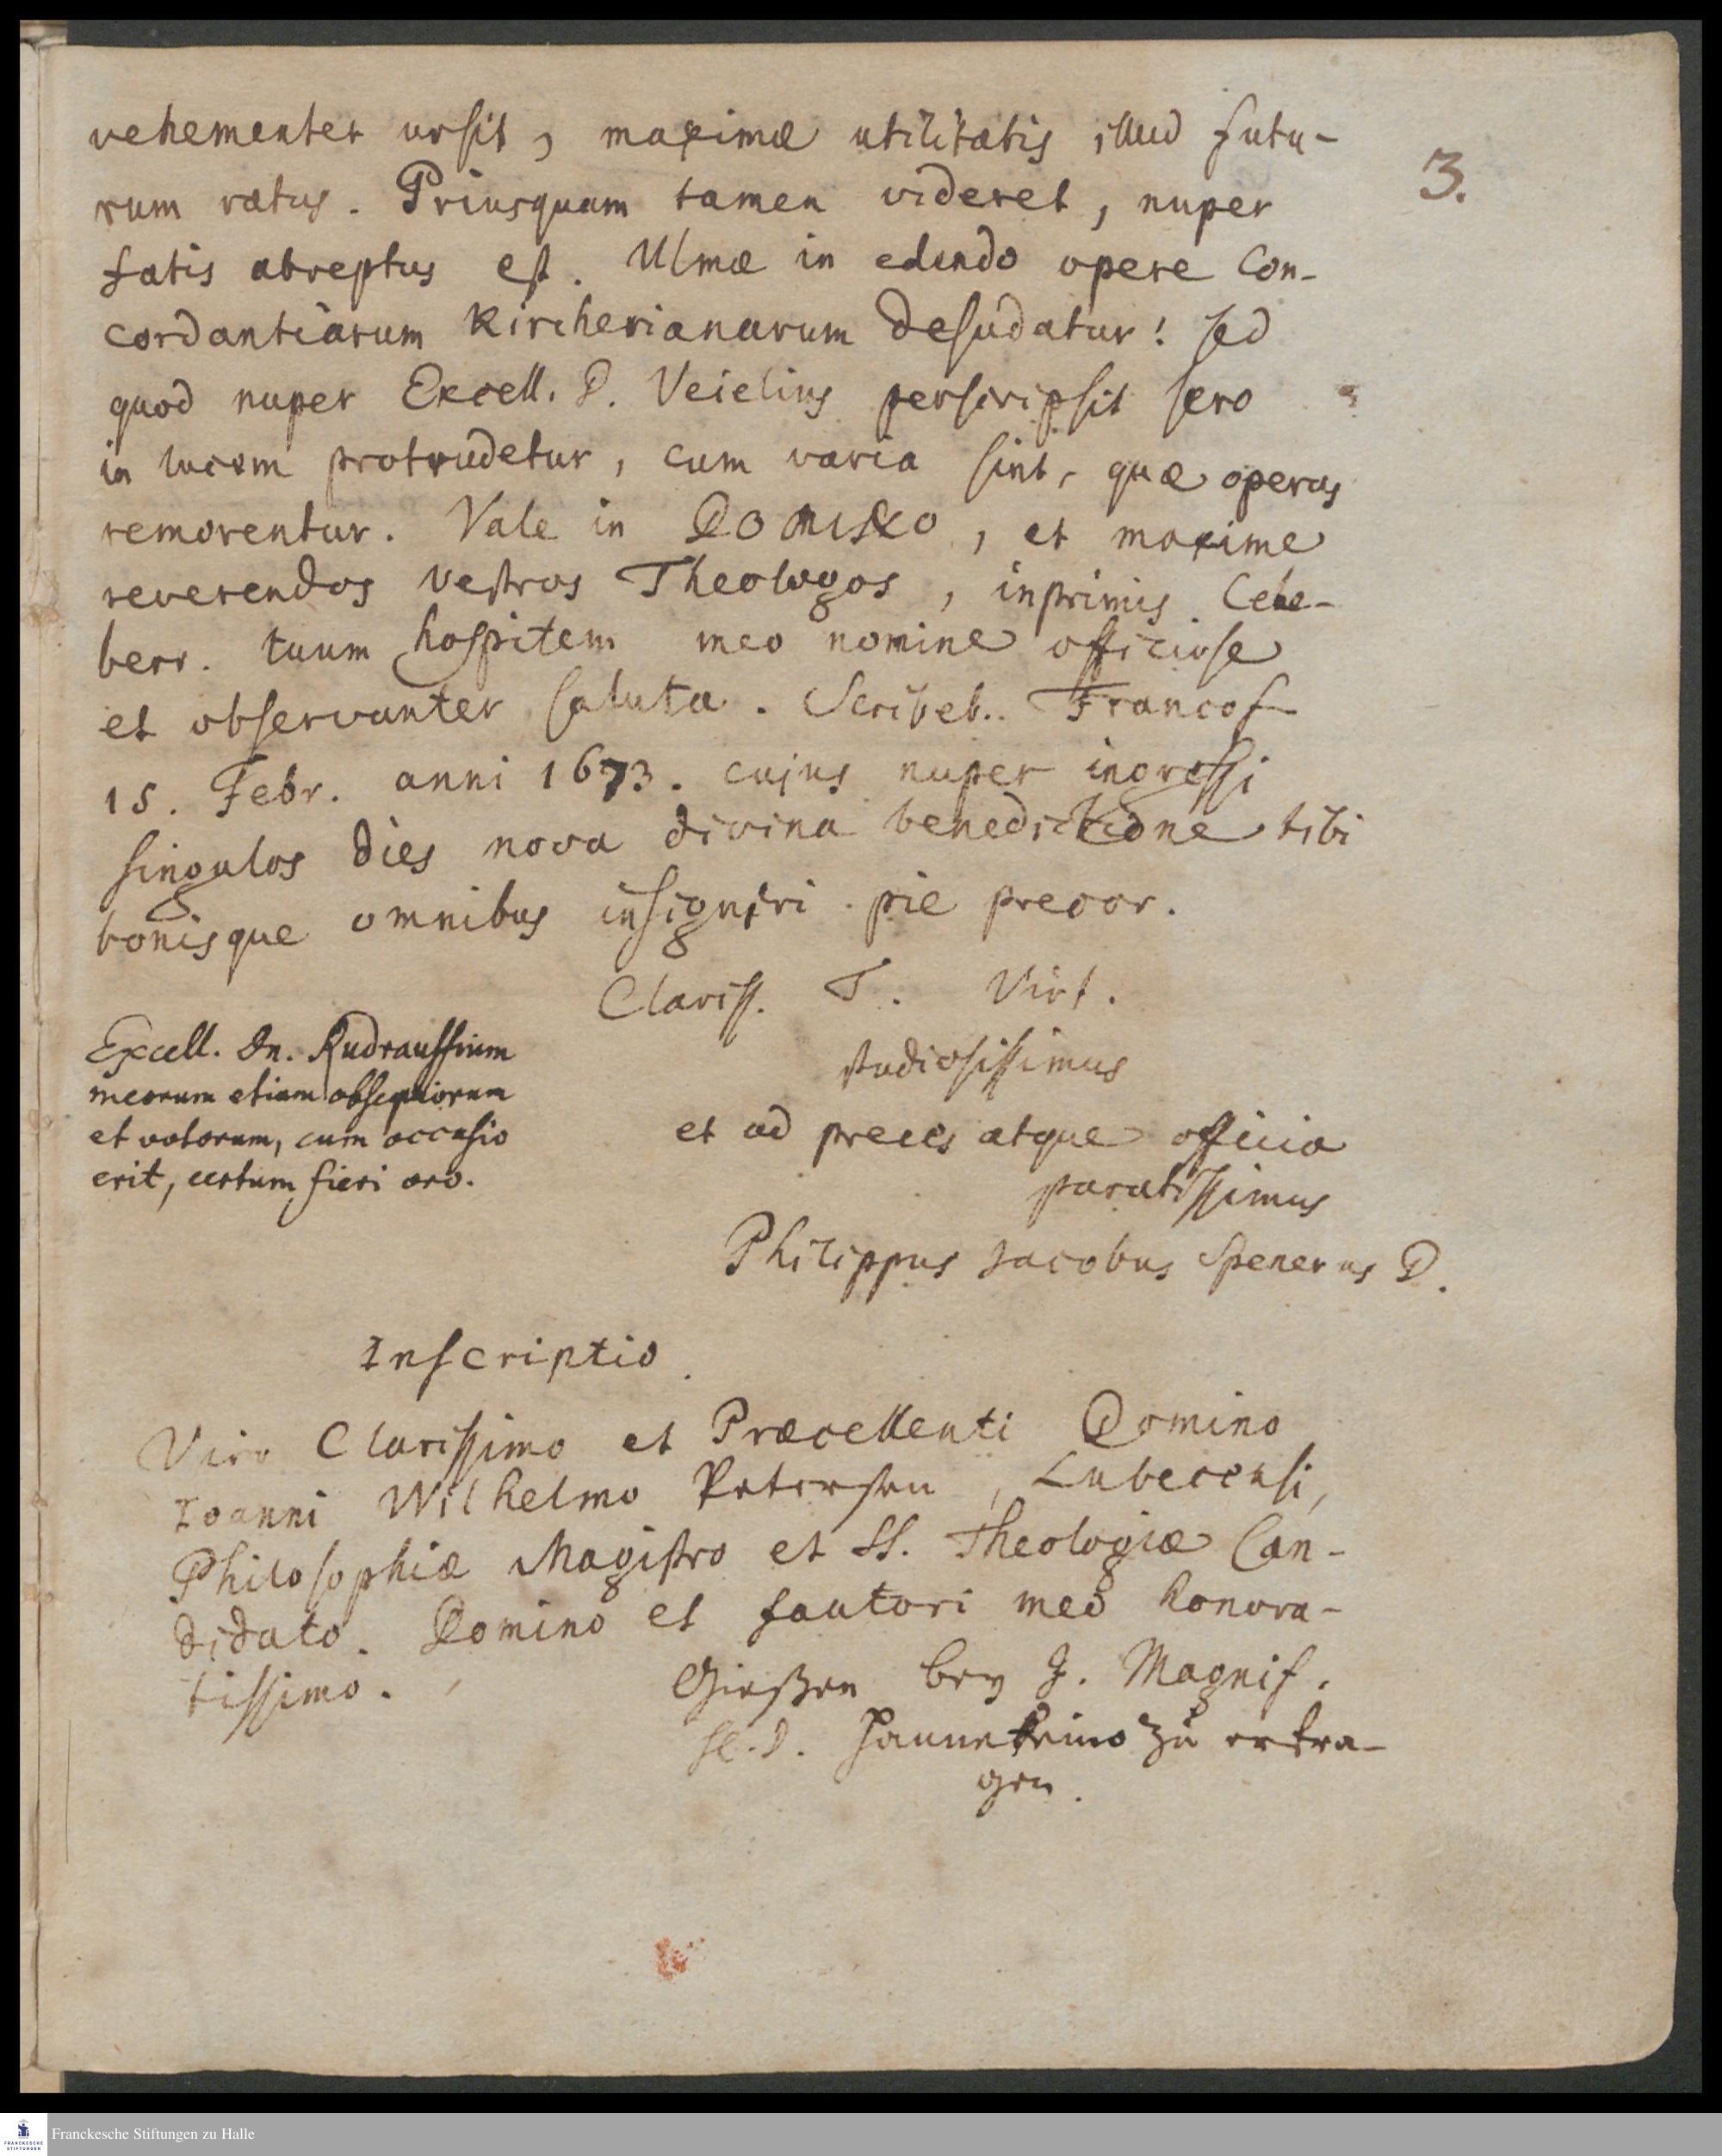 3.
vehementer ursit, maximæ utilitatis illud futu-
rum ratus. Priusquam tamen videret, nuper
fatis abreptus est. Ulmæ in edendo opere Con-
cordantiarum Kircherianarum desudatur! sed
quod nuper Excell. D. Veielius perscripsit sero
in lucem protrudetur, cum varia sint, quæ operas
remorentur. Vale in DOMINO, et maxime
reverendos vestros Theologos, inprimis Cele-
berr. tuum hospitem meo nomine officiose
et observanter saluta. Scribeb. Francof
15. Febr. anni 1673. cujus nuper ingressi
singulos dies nova divina benedictione tibi
bonisque omnibus insigniri pie precor.
Clariss. T. Virt.
studiosissimus
et ad preces atque officia
paratissimus
Philippus Jacobus Spenerus D.
Excell. Dn. Rudrauffium
meorum etiam obsequiorum
et votorum, cum occasio
erit, certum fieri oro.
Inscriptio.
Viro Clarissimo et Præcellenti Domino
Ioanni Wilhelmo Petersen, Lubecensi,
Philosophiæ Magistro et SS. Theologiæ Can-
didato. Domino et fautori meo honora-
tissimo.
Gießen bey J. Magnif.
H. D. Hannekeino zu ertra-
gen.
Franckesche Stiftungen zu Halle
FRANCKESCHE
STIFTUNGEN